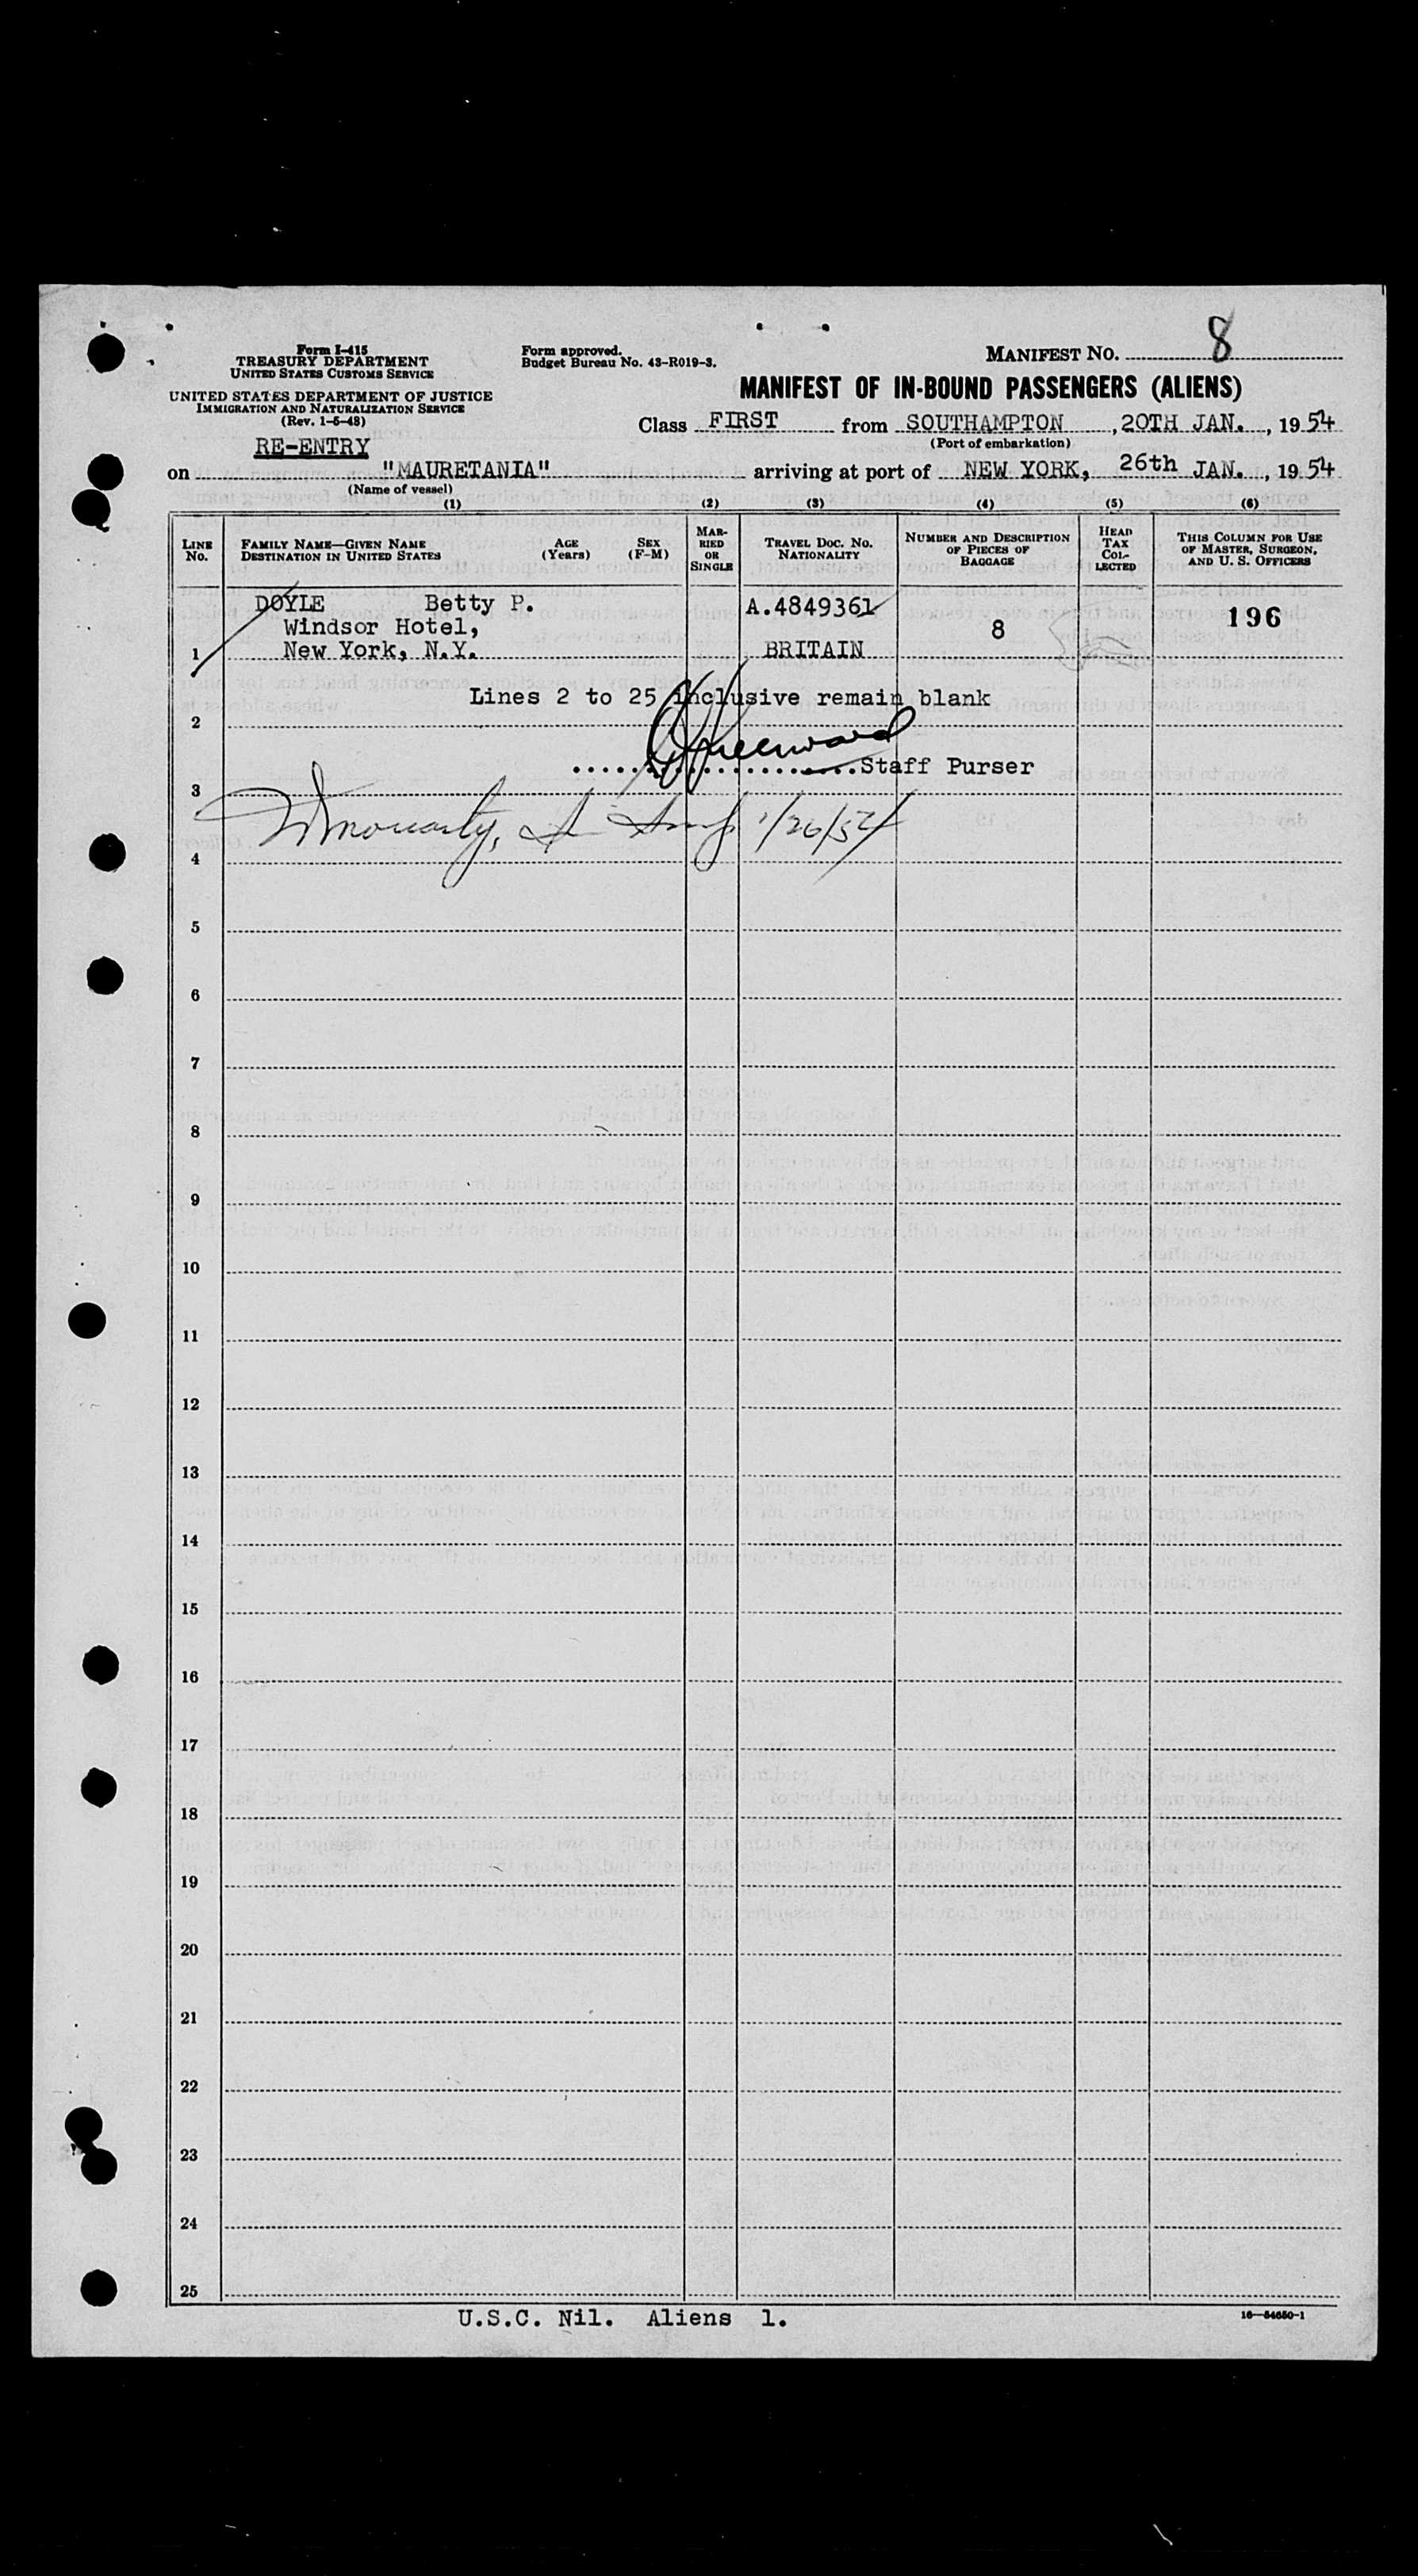 Form I-415
TREASURY DEPARTMENT
UNITED STATES CUSTOMS SERVICE
UNITED STATES DEPARTMENT OF JUSTICE
IMMIGRATION AND NATURALIZATION SERVICE
(Rev. 1-5-48)
Form approved.
Budget Bureau No. 43-R019-3.
MANIFEST NO. 8
MANIFEST OF IN-BOUND PASSENGERS (ALIENS)
Class FIRST from SOUTHAMPTON, 20TH JAN., 1954
(Port of embarkation)
RE-ENTRY
on "MAURETANIA" arriving at port of NEW YORK, 26th JAN., 1954
(Name of vessel)
(1) (2) (3) (4) (5) (6)
LINE NO.
FAMILY NAME—GIVEN NAME
DESTINATION IN UNITED STATES
AGE (Years)
SEX (F-M)
MARRIED OR SINGLE
TRAVEL DOC. NO.
NATIONALITY
NUMBER AND DESCRIPTION OF PIECES OF BAGGAGE
HEAD TAX COLLECTED
THIS COLUMN FOR USE OF MASTER, SURGEON, AND U. S. OFFICERS
DOYLE Betty P. A.4849361 196
Windsor Hotel, 8
1 New York, N.Y. BRITAIN
Lines 2 to 25 inclusive remain blank
2
Staff Purser
3
1/26/54
4
5
6
7
8
9
10
11
12
13
14
15
16
17
18
19
20
21
22
23
24
25
U.S.C. Nil. Aliens 1.
16—54650-1